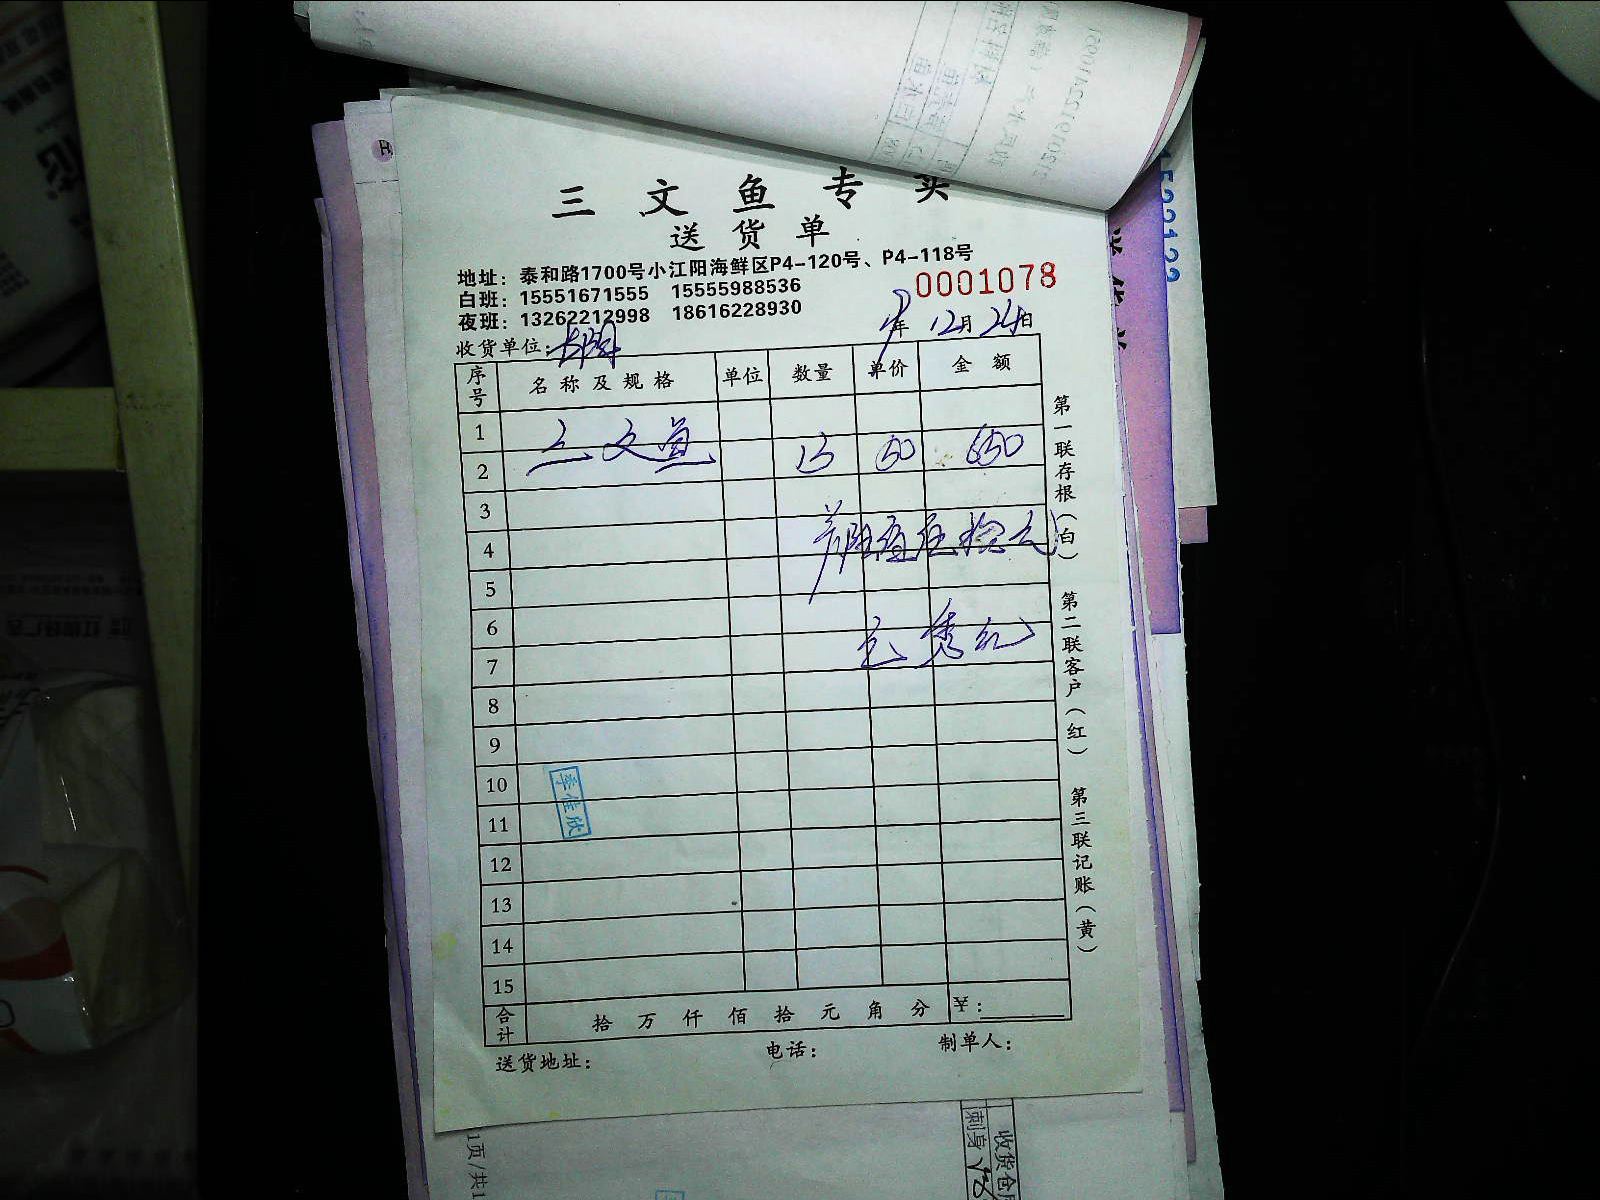 三文鱼专卖
送货单
地址：泰和路1700号小江阳海鲜区P4-120号、P4-118号
白班：15551671555 15555988536
夜班：13262212998 18616228930
0001078
年 12月 24日
收货单位：
序号 名称及规格 单位 数量 单价 金额
1
2 三文鱼 13 50 650
3
4
5
6
7
8
9
10
11
12
13
14
15
合计 拾 万 仟 佰 拾 元 角 分 ¥：
送货地址： 电话： 制单人：
第一联存根（白） 第二联客户（红） 第三联记账（黄）
李佳欣
收货仓
刺身